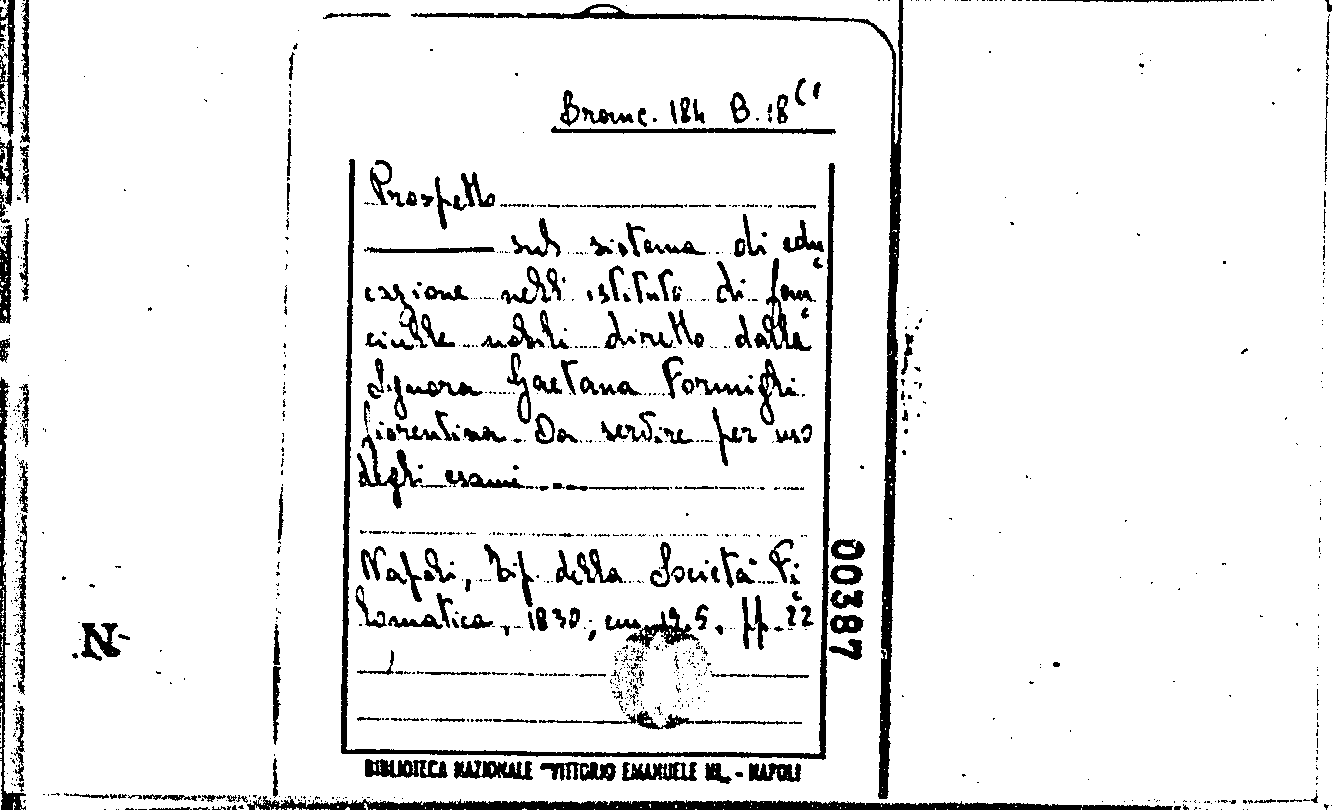 Branc. 184 B. 18
Prospetto
sul sistema di edu
cazione nell' istituto di fan
ciulle nobili diretto dalla
Signora Gaetana Formigli
fiorentina. Da servire per uso
degli esami ...
Napoli, Tip. della Società Fi
lomatica, 1830, cm. 19.5, pp. 22
00387
N-
BIBLIOTECA NAZIONALE "VITTORIO EMANUELE III" - NAPOLI